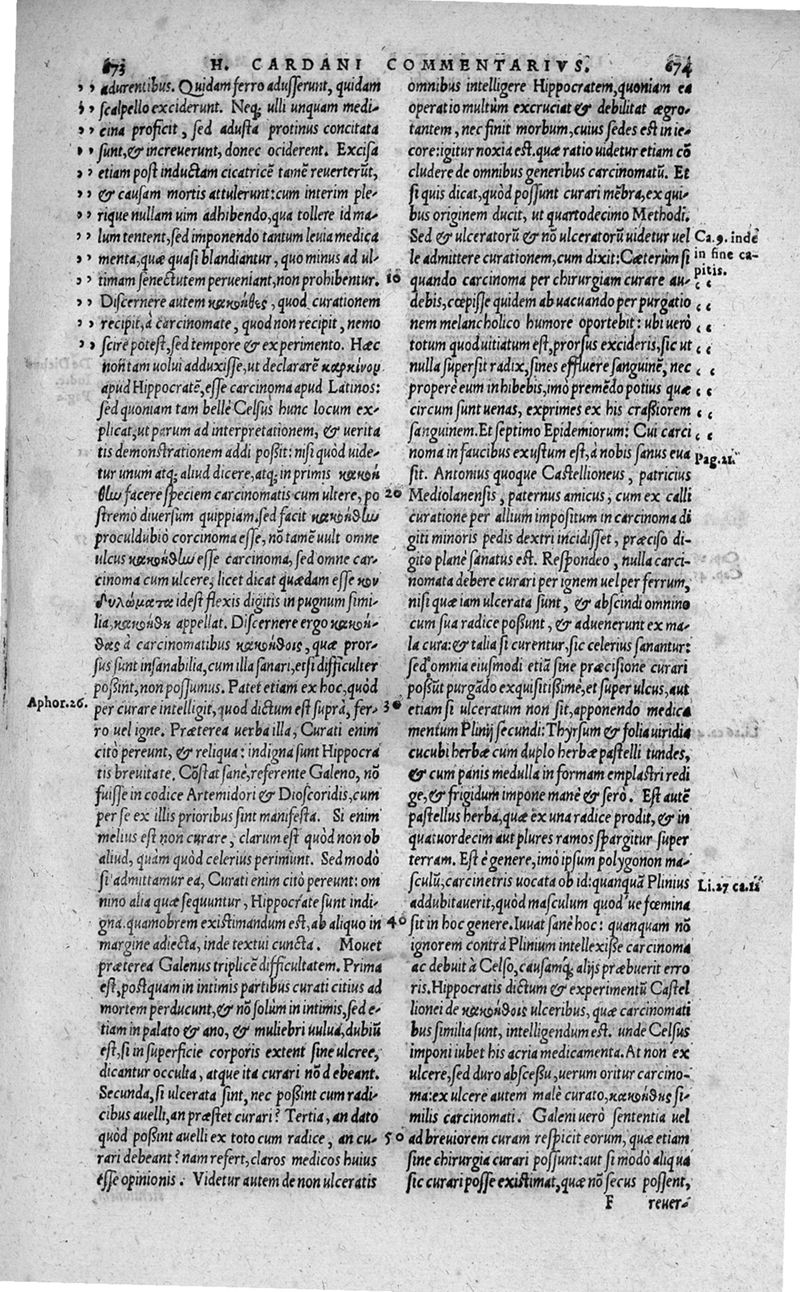 673 H. CARDANI COMMENTARIVS. 674
,, adurentibus. Quidam ferro adusserunt, quidam
,, scalpello exciderunt. Neq; ulli unquam medi-
,, cina proficit, sed adusta protinus concitata
,, sunt, & increuerunt, donec occiderent. Excisa
,, etiam post inductam cicatricē tamē reuerterūt,
,, & causam mortis attulerunt: cum interim ple-
,, rique nullam uim adhibendo, qua tollere id ma-
,, lum tentent, sed imponendo tantum leuia medica
,, menta, quæ quasi blandiantur, quo minus ad ul-
,, timam senectutem perueniant, non prohibentur. 10
,, Discernere autem κακοήθες, quod curationem
,, recipit, à carcinomate, quod non recipit, nemo
,, scire potest, sed tempore & experimento. Hæc
non tam uolui adduxisse, ut declararē καρκίνον
apud Hippocratē, esse carcinoma apud Latinos:
sed quoniam tam bellè Celsus hunc locum ex-
plicat, ut parum ad interpretationem, & uerita
tis demonstrationem addi possit: nisi quòd uide-
tur unum atq; aliud dicere, atq; in primis κακοή
θω facere speciem carcinomatis cum ultere, po 20
stremò diuersum quippiam. sed facit κακοήθω
proculdubiò corcinoma esse, nō tamē uult omne
ulcus κακοήθω esse carcinoma, sed omne car-
cinoma cum ulcere, licet dicat quædam esse κον
δυλώματα idest flexis digitis in pugnum simi-
lia, κακοήθη appellat. Discernere ergo κακοή-
θες à carcinomatibus κακοήθοις, quæ pror-
sus sunt insanabilia, cum illa sanari, etsi difficulter
possint, non possumus. Patet etiam ex hoc, quòd
Aphor. 26. per curare intelligit, quod dictum est suprà, fer- 30
ro uel igne. Præterea uerba illa, Curati enim
citò pereunt, & reliqua: indigna sunt Hippocra
tis breuitate. Cōstat sanè, referente Galeno, nō
fuisse in codice Artemidori & Dioscoridis, cum
per se ex illis prioribus sint manifesta. Si enim
melius est non curare, clarum est quòd non ob
aliud, quàm quòd celerius perimunt. Sed modò
si admittamur ea, Curati enim citò pereunt: om
nino alia quæ sequuntur, Hippocrate sunt indi-
gna. quamobrem existimandum est, ab aliquo in 40
margine adiecta, inde textui cuncta. Mouet
præterea Galenus triplicē difficultatem. Prima
est, postquam in intimis partibus curati citius ad
mortem perducunt, & nō solùm in intimis, sed e-
tiam in palato & ano, & muliebri uulua, dubiū
est, si in superficie corporis extent sine ulcree,
dicantur occulta, atque ita curari nō debeant.
Secunda, si ulcerata sint, nec possint cum radi-
cibus auelli, an præstet curari? Tertia, an dato
quòd possint auelli ex toto cum radice, an cu- 50
rari debeant? nam refert, claros medicos huius
esse opinionis. Videtur autem de non ulceratis
omnibus intelligere Hippocratem, quoniam ea
operatio multùm excruciat & debilitat ægro-
tantem, nec finit morbum, cuius sedes est in ie-
core: igitur noxia est. quæ ratio uidetur etiam cō
cludere de omnibus generibus carcinomatū. Et
si quis dicat, quòd possunt curari mēbra, ex qui-
bus originem ducit, ut quartodecimo Methodi.
Sed & ulceratorū & nō ulceratorū uidetur uel Ca. 9. inde
le admittere curationem, cum dixit: Cæterùm si in fine ca-
quando carcinoma per chirurgiam curare au- pitis. ‚‚
debis, cœpisse quidem ab uacuando per purgatio ‚‚
nem melancholico humore oportebit: ubi uerò ‚‚
totum quod uitiatum est, prorsus excideris, sic ut ‚‚
nulla supersit radix, sines effluere sanguinē, nec ‚‚
properè eum inhibebis, imò premēdo potius quæ ‚‚
circum sunt uenas, exprimes ex his crassiorem ‚‚
sanguinem. Et septimo Epidemiorum: Cui carci ‚‚
noma in faucibus exustum est, à nobis sanus eua Pag. 21.
sit. Antonius quoque Castellioneus, patricius
Mediolanensis, paternus amicus, cum ex calli
curatione per allium impositum in carcinoma di
giti minoris pedis dextri incidisset, præciso di-
gito planè sanatus est. Respondeo, nulla carci-
nomata debere curari per ignem uel per ferrum,
nisi quæ iam ulcerata sunt, & abscindi omnino
cum sua radice possunt, & aduenerunt ex ma-
la cura: & talia si curentur, sic celerius sanantur:
sed omnia eiusmodi etiā sine præcisione curari
possūt purgādo exquisitissimè, et super ulcus, aut
etiam si ulceratum non sit, apponendo medica
mentum Plinij secundi: Thyrsum & folia uiridia
cucubi herbæ cum duplo herbæ pastelli tundes,
& cum panis medulla in formam emplastri redi
ge, & frigidum impone manè & serò. Est autē
pastellus herba, quæ ex una radice prodit, & in
quatuordecim aut plures ramos spargitur super
terram. Est è genere, imò ipsum polygonon ma-
sculū, carcinetris uocata ob id: quanquā Plinius Li. 27 ca. 12
addubitauerit, quòd masculum quod'ue fœmina
sit in hoc genere. Iuuat sanè hoc: quanquam nō
ignorem contrà Plinium intellexisse carcinoma
ac debuit à Celso, causamq; alijs præbuerit erro
ris. Hippocratis dictum & experimentū Castel
lionei de κακοήθοις ulceribus, quæ carcinomati
bus similia sunt, intelligendum est. unde Celsus
imponi iubet his acria medicamenta. At non ex
ulcere, sed duro abscessu, uerum oritur carcino-
ma: ex ulcere autem malè curato, κακοήθης si-
milis carcinomati. Galeni uerò sententia uel
ad breuiorem curam respicit eorum, quæ etiam
sine chirurgia curari possunt: aut si modò aliqua
sic curari posse existimat, quæ nō secus possent,
F reuer-